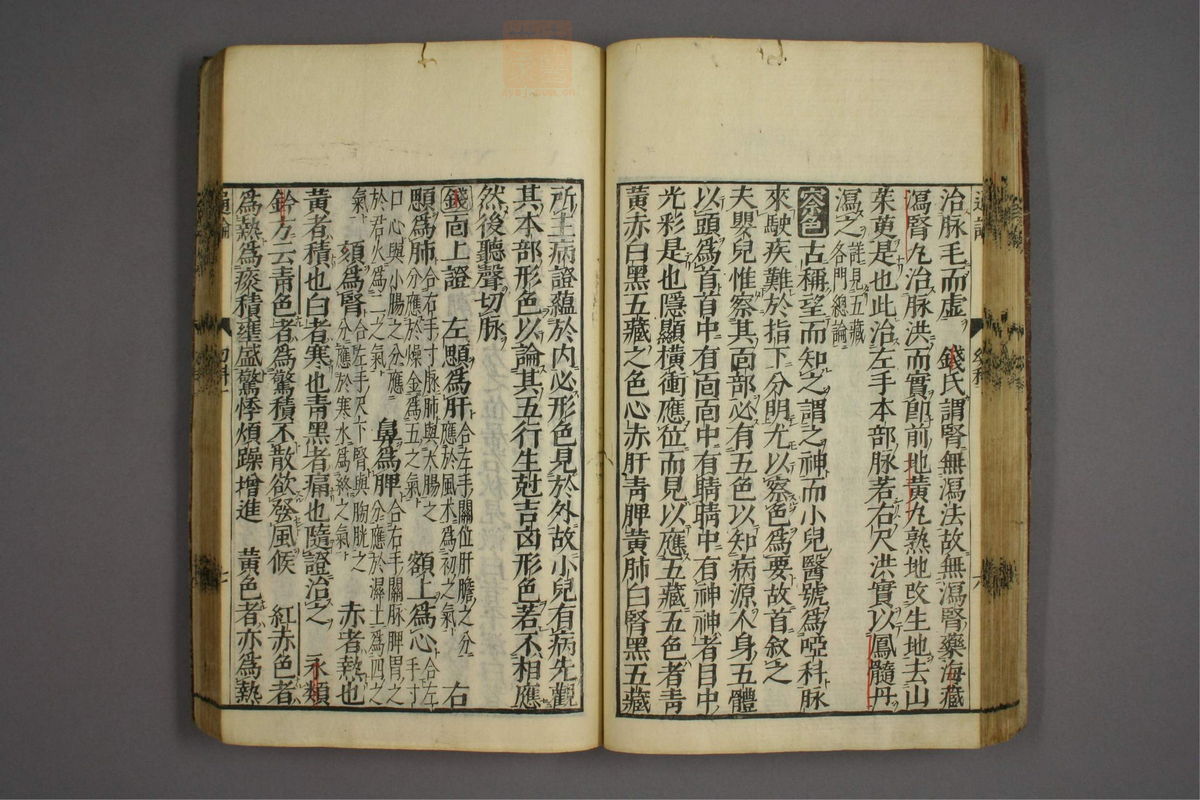 治脉毛而虛　錢氏謂腎無瀉法故無瀉腎藥海藏
瀉腎丸治脉洪而實即前地黃丸熟地改生地去山
茱萸是也此治左手本部脉若右尺洪實以鳳髓丹
瀉之註見五藏
各門總論
察色古稱望而知之謂之神而小兒醫號爲啞科脉
來駛疾難於指下分明尤以察色爲要故首叙之
夫嬰兒惟察其面部必有五色以知病源人身五體
以頭爲首首中有面面中有睛睛中有神神者目中
光彩是也隱顯橫衝應位而見以應五藏五色者青
黃赤白黑五藏之色心赤肝青脾黃肺白腎黑五藏
所主病證蘊於內必形色見於外故小兒有病先觀
其本部形色以論其五行生尅吉凶形色若不相應
然後聽聲切脉
錢面上證　左顋爲肝合左手關位肝膽之分
應於風木爲初之氣　右
顋爲肺合右手寸脉肺與大腸之
分應於燥金爲五之氣　額上爲心合左
手寸
口心與小腸之分應
於君火爲二之氣　鼻爲脾合右手關脉脾胃之
分應於濕土爲四之
氣　頦爲腎合左手尺下腎與膀胱之
分應於寒水爲終之氣　赤者熱也
黃者積也白者寒也青黑者痛也隨證治之　永類
鈐方云青色者爲驚積不散欲發風候　紅赤色者
爲熱爲痰積壅盛驚悸煩躁增進　黃色者亦爲熱